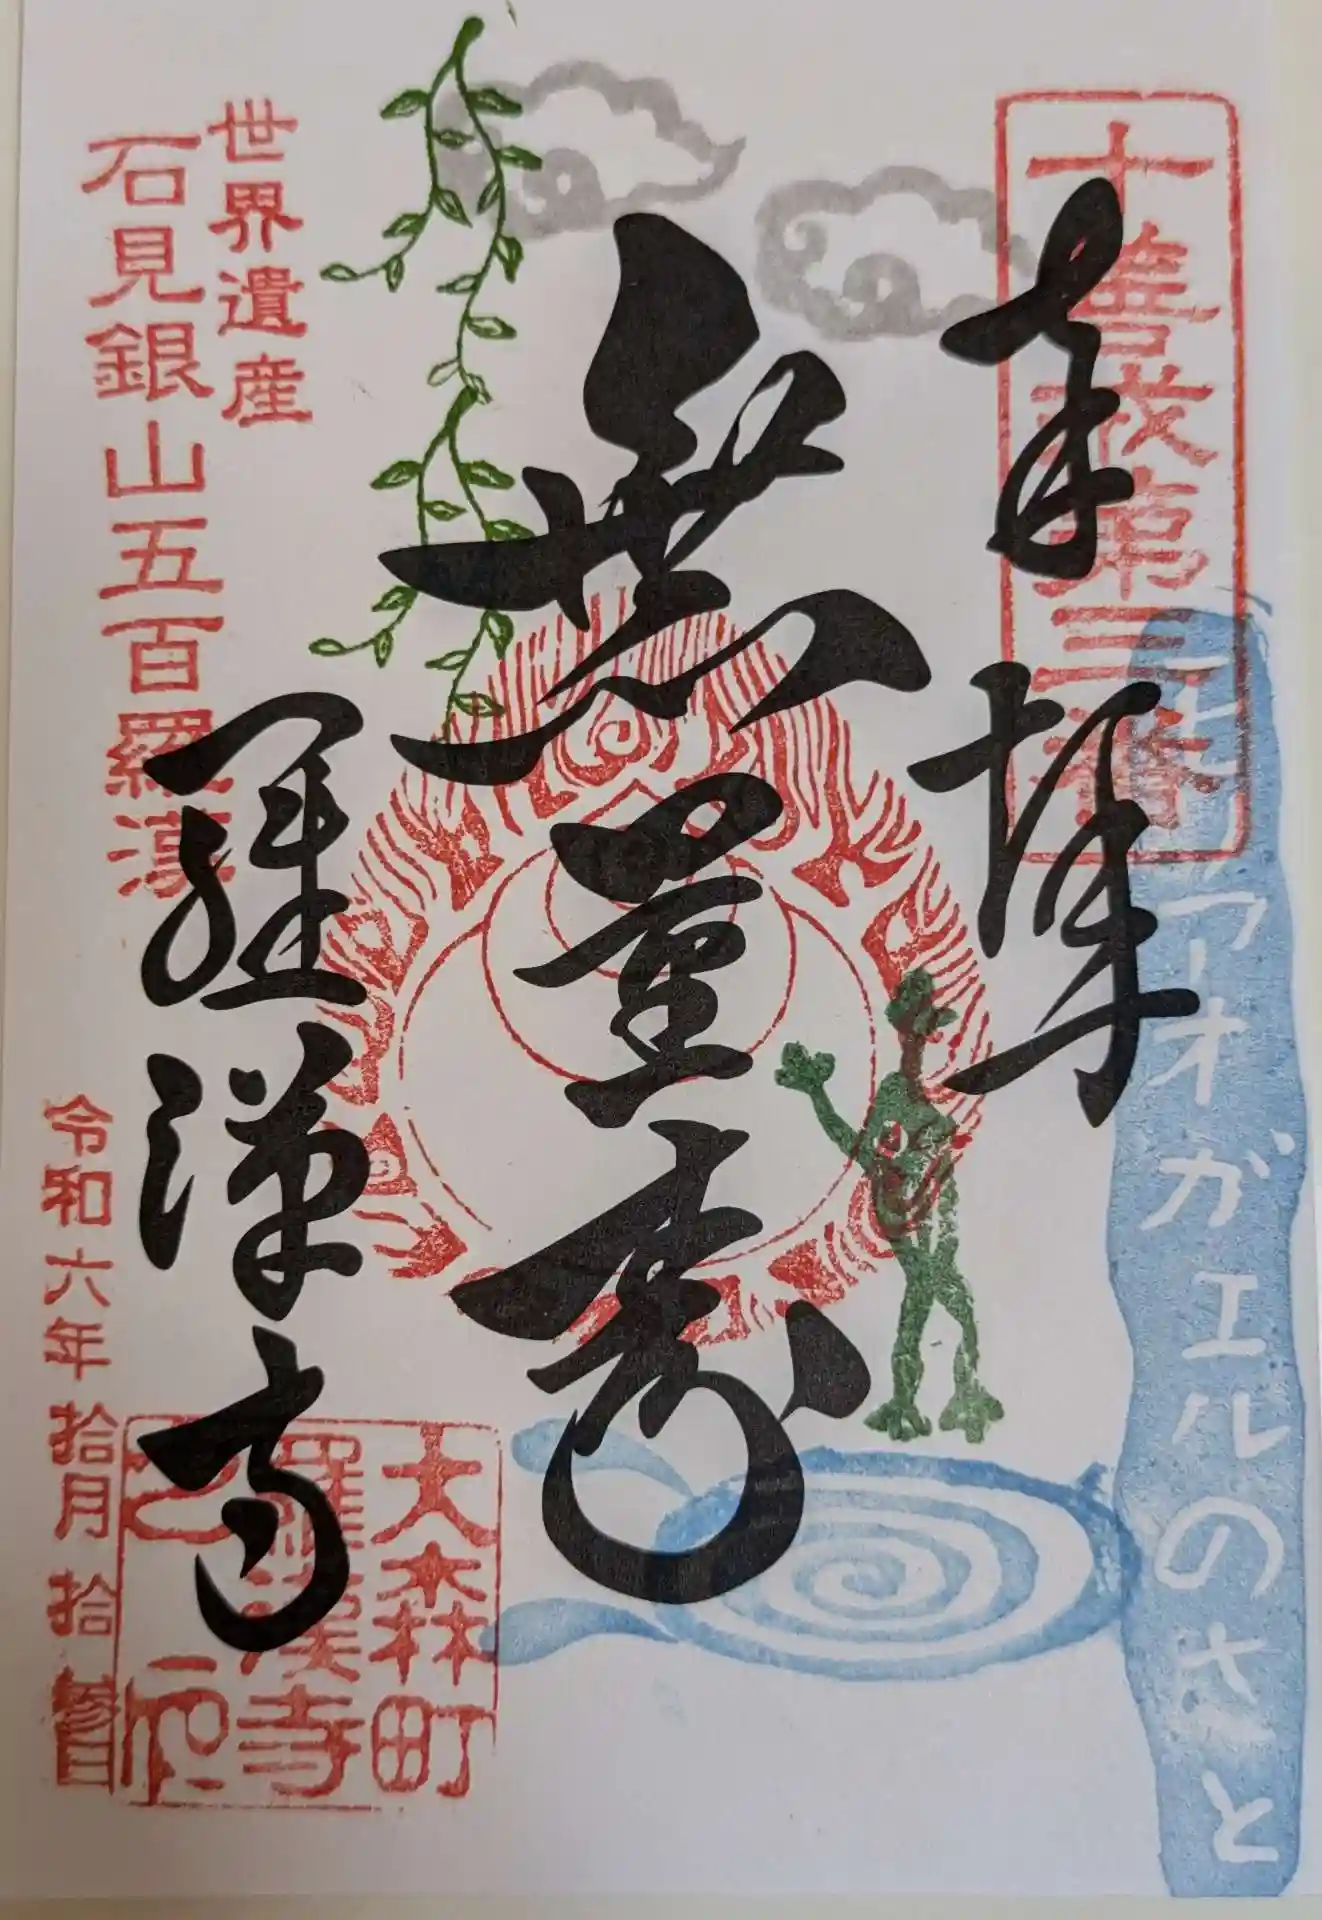 奉拝
十善戒第三番
モリアオガエルのさと
無量寿
世界遺産
石見銀山五百羅漢
羅漢寺
大森町
羅漢寺
之印
令和六年拾月拾参日